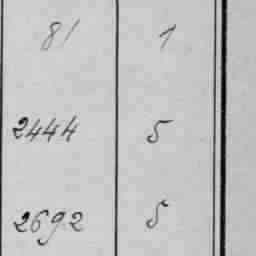 81 1
2444 5
2692 5